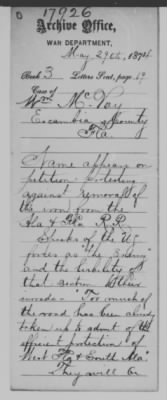 17926
Archive Office,
WAR DEPARTMENT,
May 29th, 1874
Book 3 Letters Sent, page 69
Case of
Wm McVay
Escambia County
Fla
Name appears on
petition protesting
against removal of
the iron from the
Ala & Fla R.R.
Speaks of the U.S.
forces as the "Enemy"
and the liability of
that section to their
inroads - "Too much of
the road has been already
taken up to admit of the
efficient protection of
West Fla & South Ala"
They will be